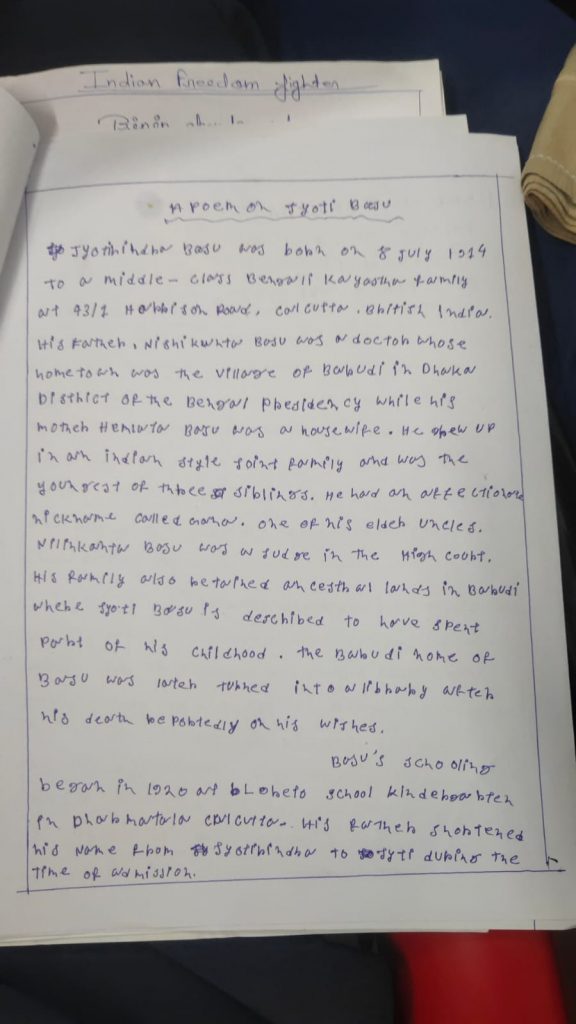 Indian Freedom fighter
A Poem on Jyoti Basu
Jyotirindra Basu was born on 8 July 1914
to a middle - class Bengali Kayastha family
at 43/1 Harrison Road, Calcutta, British India.
His Father, Nishikanta Basu was a doctor whose
hometown was the village of Barudi in Dhaka
District of the Bengal Presidency while his
mother Hemlata Basu was a housewife. He grew up
in an indian style joint family and was the
youngest of three siblings. He had an affectionate
nickname called Gana. One of his elder uncles,
Nilinkanta Basu was a judge in the High Court.
His family also retained ancestral lands in Barudi
where Jyoti Basu is described to have spent
part of his childhood. The Barudi home of
Basu was later turned into a library after
his death reportedly on his wishes.
Basu's schooling
began in 1920 at Loreto School Kindergarten
in Dharmatala Calcutta. His father shortened
his name from Jyotirindra to Jyti during the
time of admission.